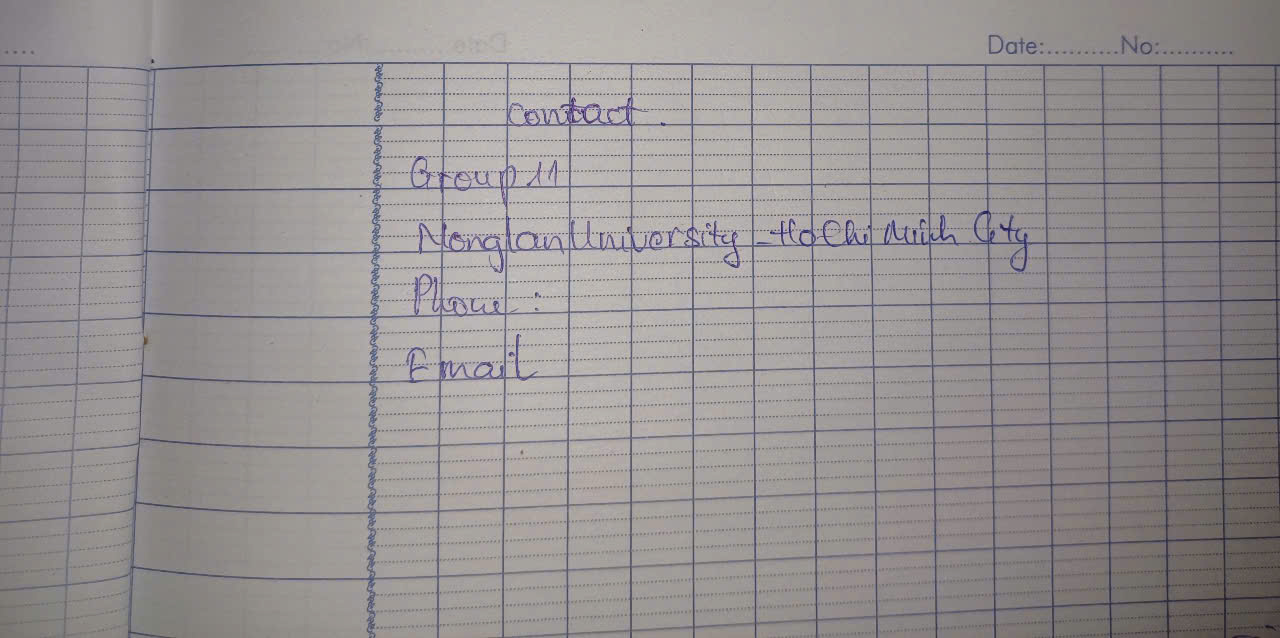 Date:..........No:..........
Contact.
Group 11
Nonglan University - Ho Chi Minh City
Phone :
Email